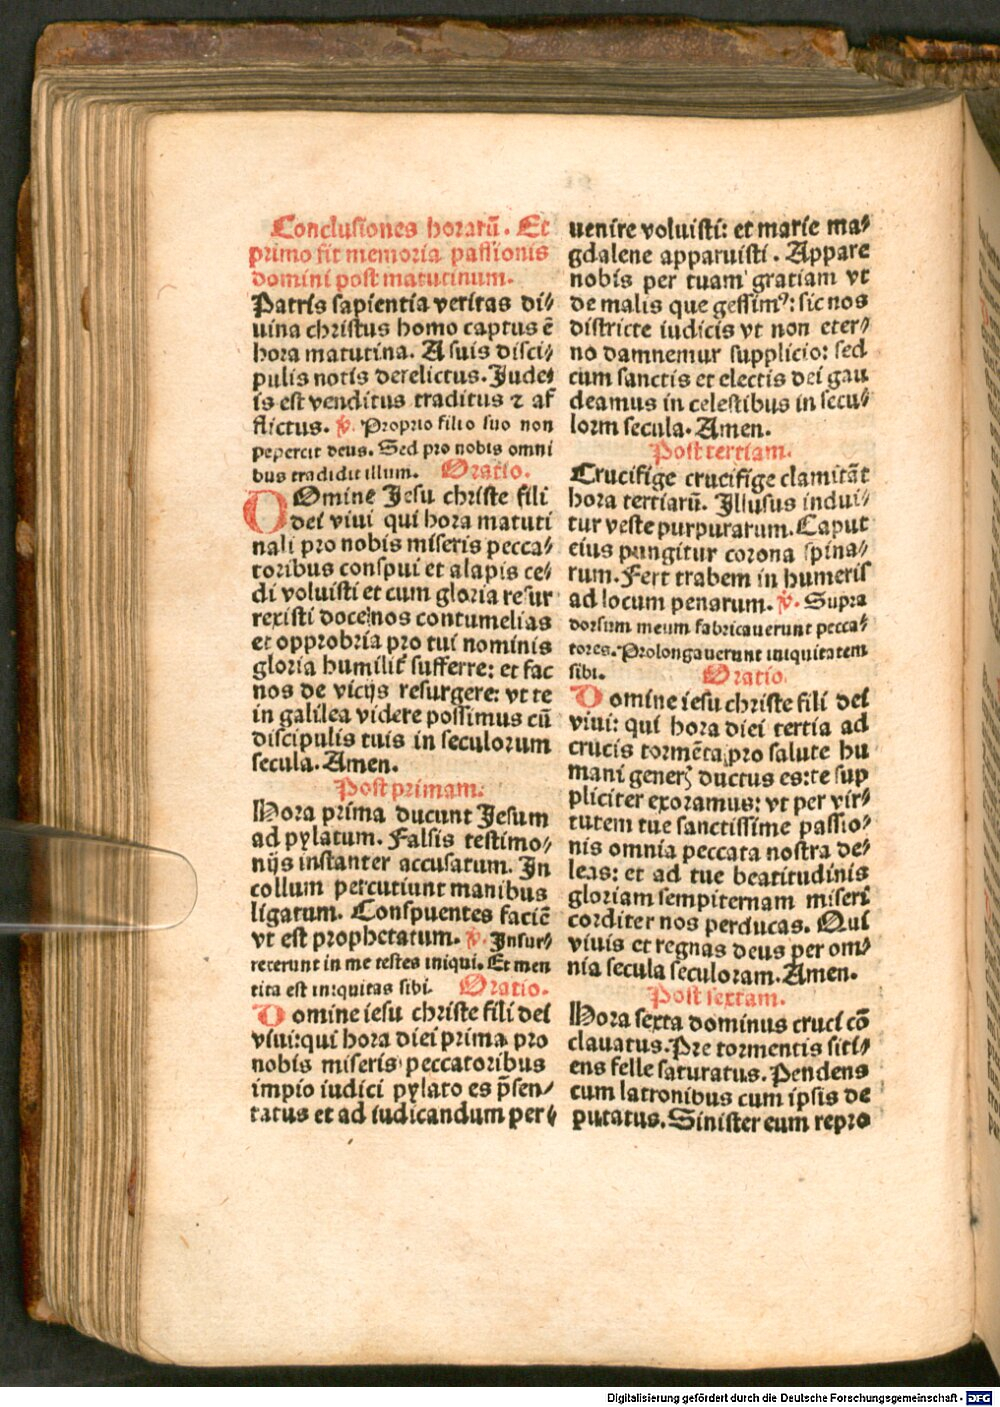 Conclusiones horarū. Et
primo fit memoria passionis
domini post matutinum.
Patris sapientia veritas di⸗
uina christus homo captus ē
hora matutina. A suis disci⸗
pulis notis derelictus. Jude⸗
is est venditus traditus ⁊ af
flictus. ℣. Proprio filio suo non
pepercit deus. Sed pro nobis omni
bus tradidit illum. Oratio.
DOmine Jesu christe fili
dei viui qui hora matuti
nali pro nobis miseris pecca⸗
toribus conspui et alapis ce⸗
di voluisti et cum gloria resur
rexisti doce nos contumelias
et opprobria pro tui nominis
gloria humilit̄ sufferre: et fac
nos de vicijs resurgere: vt te
in galilea videre possimus cū
discipulis tuis in seculorum
secula. Amen.
Post primam.
Hora prima ducunt Jesum
ad pylatum. Falsis testimo⸗
nijs instanter accusatum. In
collum percutiunt manibus
ligatum. Conspuentes faciē
vt est prophetatum. ℣. Insur⸗
rexerunt in me testes iniqui. Et men
tita est iniquitas sibi. Oratio.
Domine iesu christe fili dei
viui: qui hora diei prima pro
nobis miseris peccatoribus
impio iudici pylato es p̄sen⸗
tatus et ad iudicandum per⸗
uenire voluisti: et marie ma⸗
gdalene apparuisti. Appare
nobis per tuam gratiam vt
de malis que gessimꝰ: sic nos
districte iudicis vt non eter⸗
no damnemur supplicio: sed
cum sanctis et electis dei gau
deamus in celestibus in secu⸗
lorm secula. Amen.
Post tertiam.
Crucifige crucifige clamitāt
hora tertiarū. Illusus indui⸗
tur veste purpurarum. Caput
eius pungitur corona spina⸗
rum. Fert trabem in humeris
ad locum penarum. ℣. Supra
dorsum meum fabricauerunt pecca⸗
tores. Prolongauerunt iniquitatem
sibi. Oratio.
Domine iesu christe fili dei
viui: qui hora diei tertia ad
crucis tormēta pro salute hu
mani generꝭ ductus es: te sup
pliciter exoramus: vt per vir⸗
tutem tue sanctissime passio⸗
nis omnia peccata nostra de⸗
leas: et ad tue beatitudinis
gloriam sempiternam miseri
corditer nos perducas. Qui
viuis et regnas deus per om⸗
nia secula seculoram. Amen.
Post sextam.
Hora sexta dominus cruci cō
clauatus. Pre tormentis siti⸗
ens felle saturatus. Pendens
cum latronibus cum ipsis de
putatus. Sinister eum repro
Digitalisierung gefördert durch die Deutsche Forschungsgemeinschaft - DFG